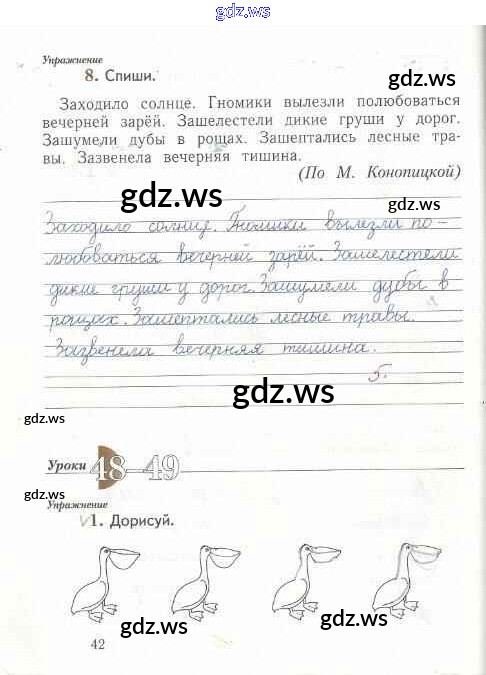 gdz.ws
Упражнение
8. Спиши.
Заходило солнце. Гномики вылезли полюбоваться
вечерней зарёй. Зашелестели дикие груши у дорог.
Зашумели дубы в рощах. Зашептались лесные тра-
вы. Зазвенела вечерняя тишина.
(По М. Конопицкой)
gdz.ws
Заходило солнце. Гномики вылезли по-
любоваться вечерней зарёй. Зашелестели
дикие груши у дорог. Зашумели дубы в
рощах. Зашептались лесные травы.
Зазвенела вечерняя тишина.
5.
gdz.ws
gdz.ws
Уроки 48–49
gdz.ws
Упражнение
1. Дорисуй.
gdz.ws
gdz.ws
gdz.ws
42
gdz.ws